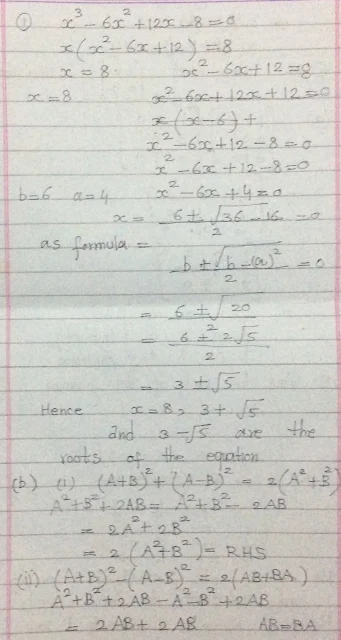 ① x³ - 6x² + 12x - 8 = 0
x(x² - 6x + 12) = 8
x = 8. x² - 6x + 12 = 8
x = 8 x² - 6x + 12x + 12 = 0
x(x - 6) +
x² - 6x + 12 - 8 = 0
x² - 6x + 12 - 8 = 0
b = 6 a = 4 x² - 6x + 4 = 0
x = 6 ± √36 - 16 / 2 = 0
as formula =
b ± √b - (a)² / 2 = 0
= 6 ± √20 / 2
= 6 ± 2√5 / 2
= 3 ± √5
Hence x = 8, 3 + √5
and 3 - √5 are the
roots of the equation
(b) (i) (A+B)² + (A-B)² = 2(A² + B²)
A² + B² + 2AB = A² + B² - 2AB
= 2A² + 2B²
= 2(A² + B²) = RHS
(ii) (A+B)² - (A-B)² = 2(AB+BA)
A² + B² + 2AB - A² - B² + 2AB
= 2AB + 2AB AB = BA